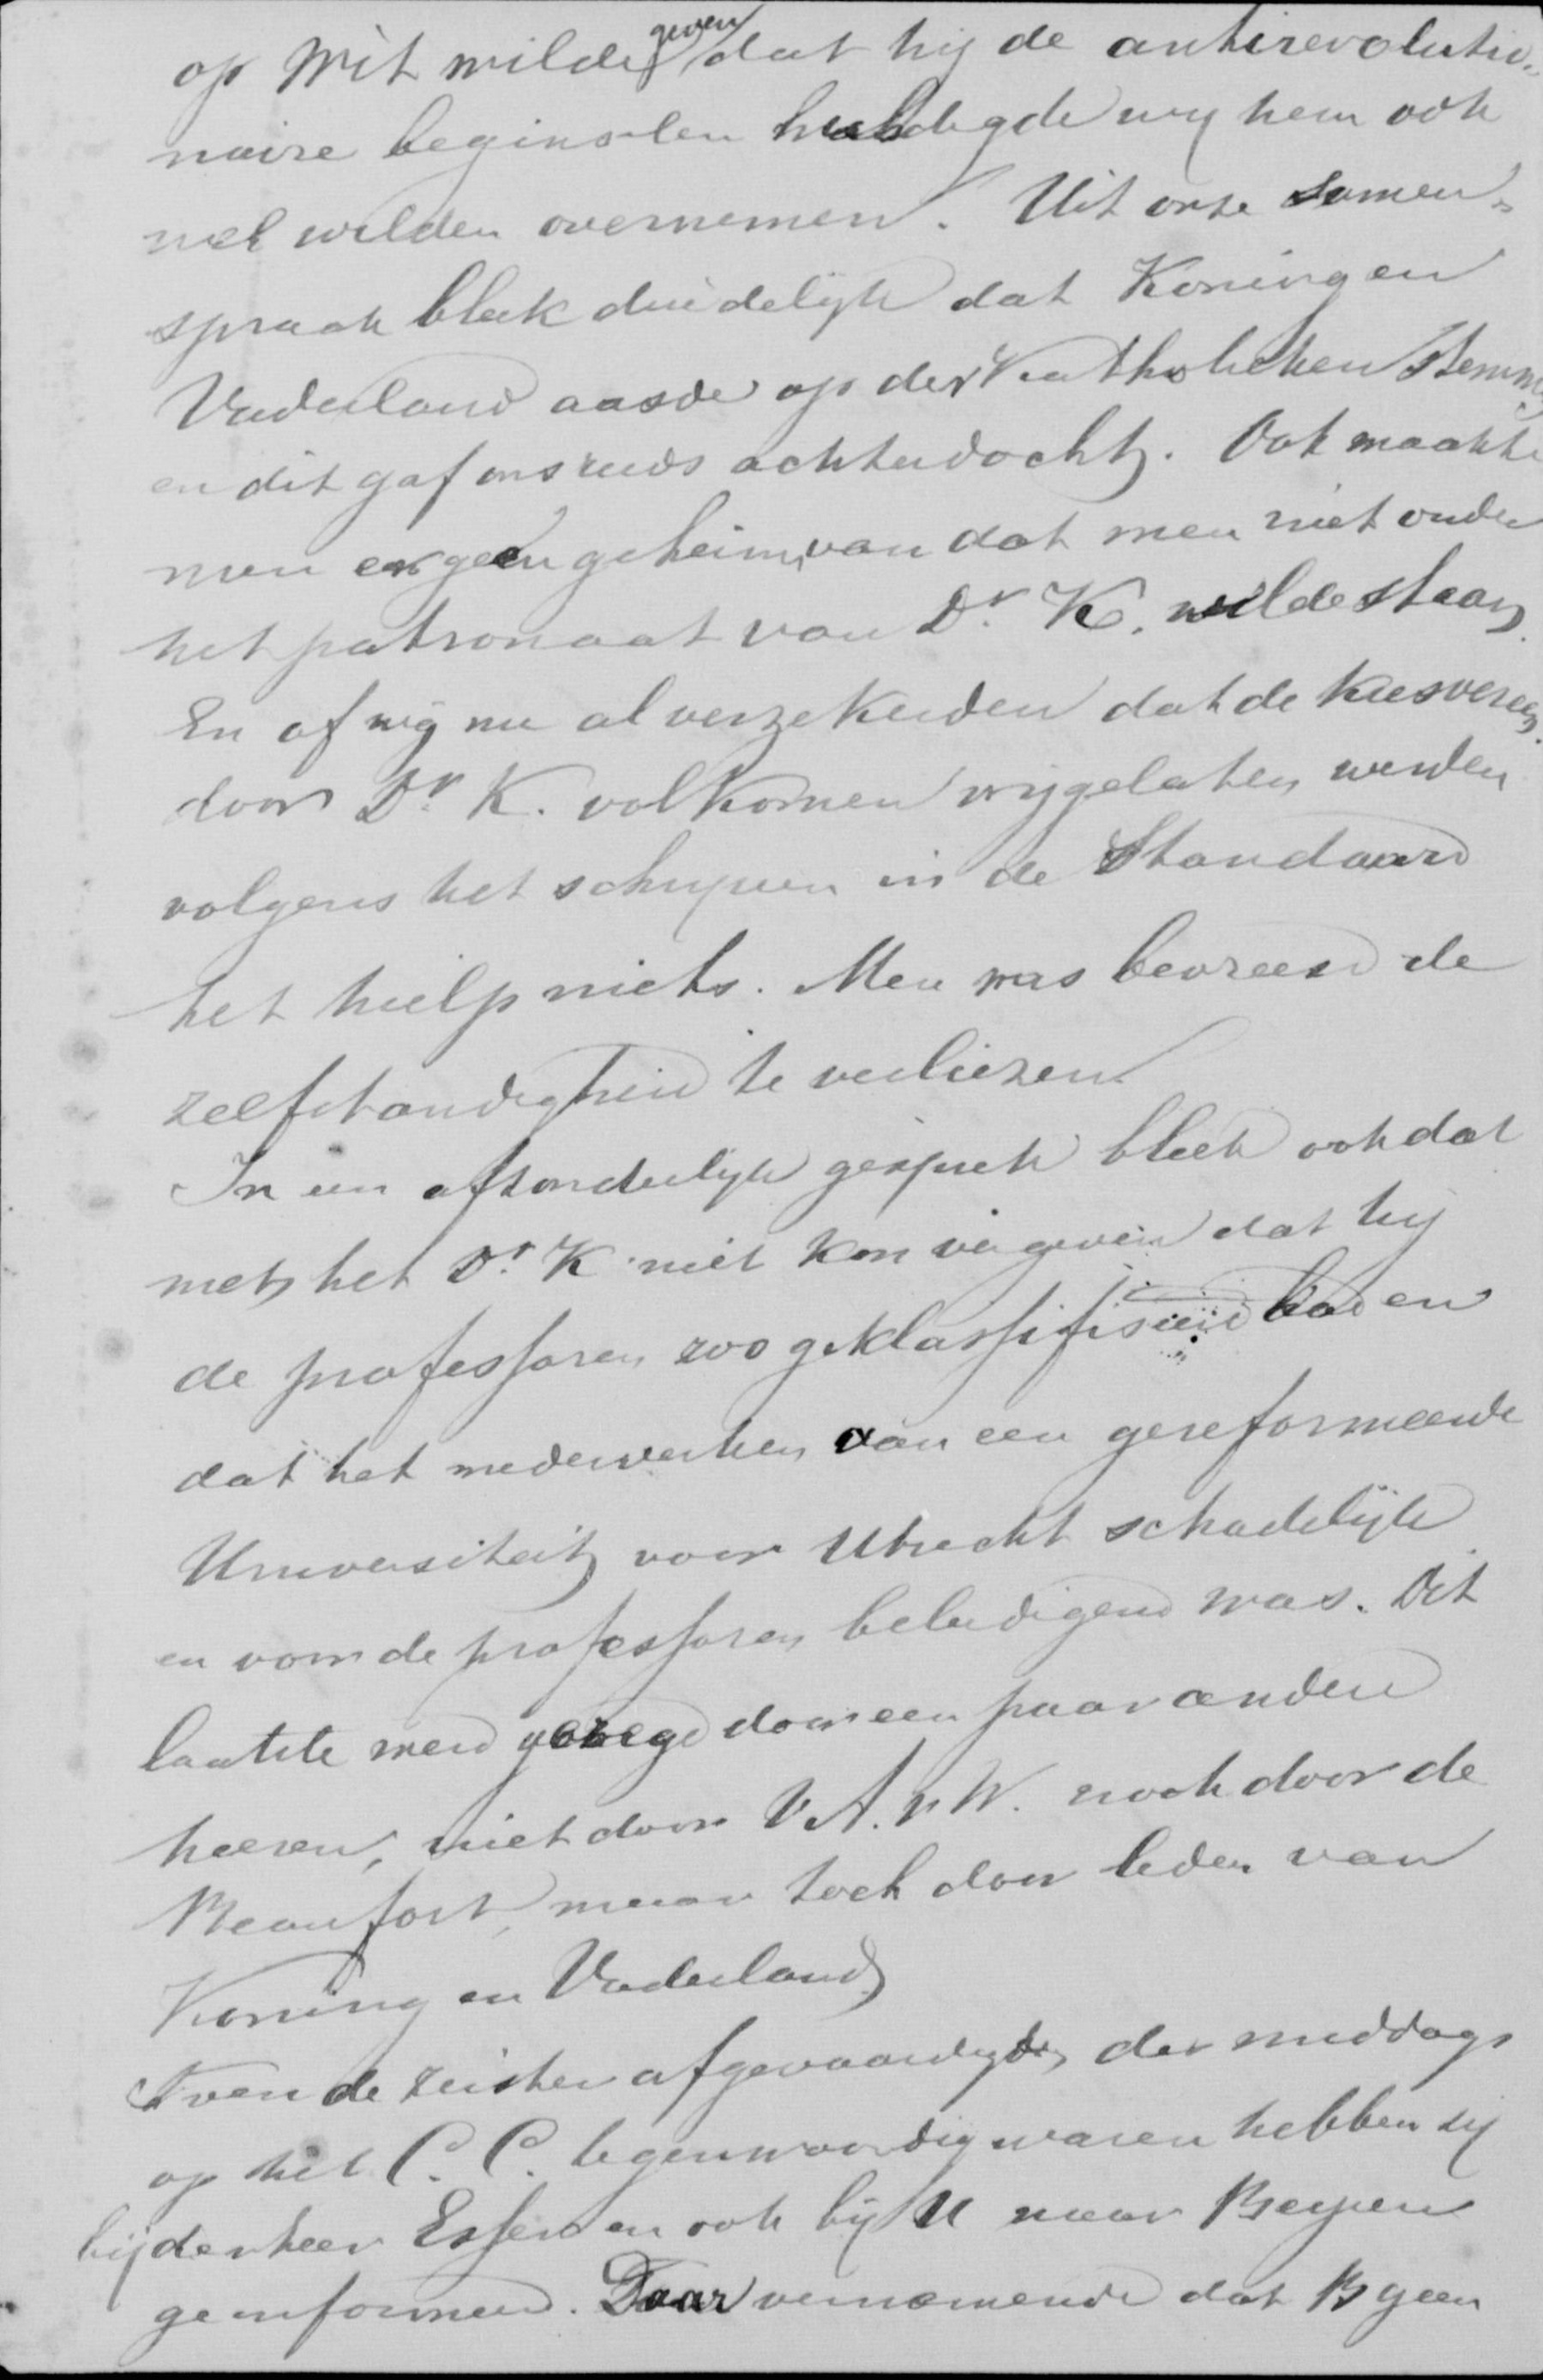 op wit wilde geven dat hij de antirevolutio-
naire beginselen huldigde wij hem ook
wel wilden overnemen. Uit onze samen-
spraak bleek duidelijk dat Koning en
Vaderland aasde op der Katholieken stemmen
en dit gaf ons reeds achterdocht. Ook maakte
men er geen geheim van dat men niet onder
het patronaat van Dr. K. wilde staan.
En of wij nu al verzekerden dat de kiesvereen.
door Dr. K. volkomen vrijgelaten werden
volgens het schrijven in de Standaard
het hielp niets. Men was bevreesd de
zelfstandigheid te verliezen.
In een afzonderlijk gesprek bleek ook dat
men het Dr. K niet kon vergeven dat hij
de professoren zoo geklassificeerd had en
dat het medewerken aan een gereformeerde
Universiteit voor Utrecht schadelijk
en voor de professoren beleedigend was. Dit
laatste werd gezegd door een paar andere
heeren, niet door V. A. v W. noch door de
Beaufort, maar toch door leden van
Koning en Vaderland
Toen de Zeister afgevaardigden des middags
op het C. C. tegenwoordig waren hebben zij
bij den heer Esser en ook bij U naar Beynen
geinformeerd. Daar vernemende dat B geen